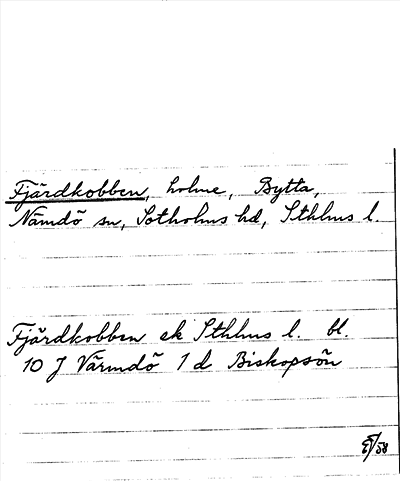 Fjärdkobben, holme, Bytta,
Nämdö sn, Sotholms hd, Sthlms l.
Fjärdkobben ek Sthlms l. bl.
10 J Värmdö 1 d Biskopsön
/58